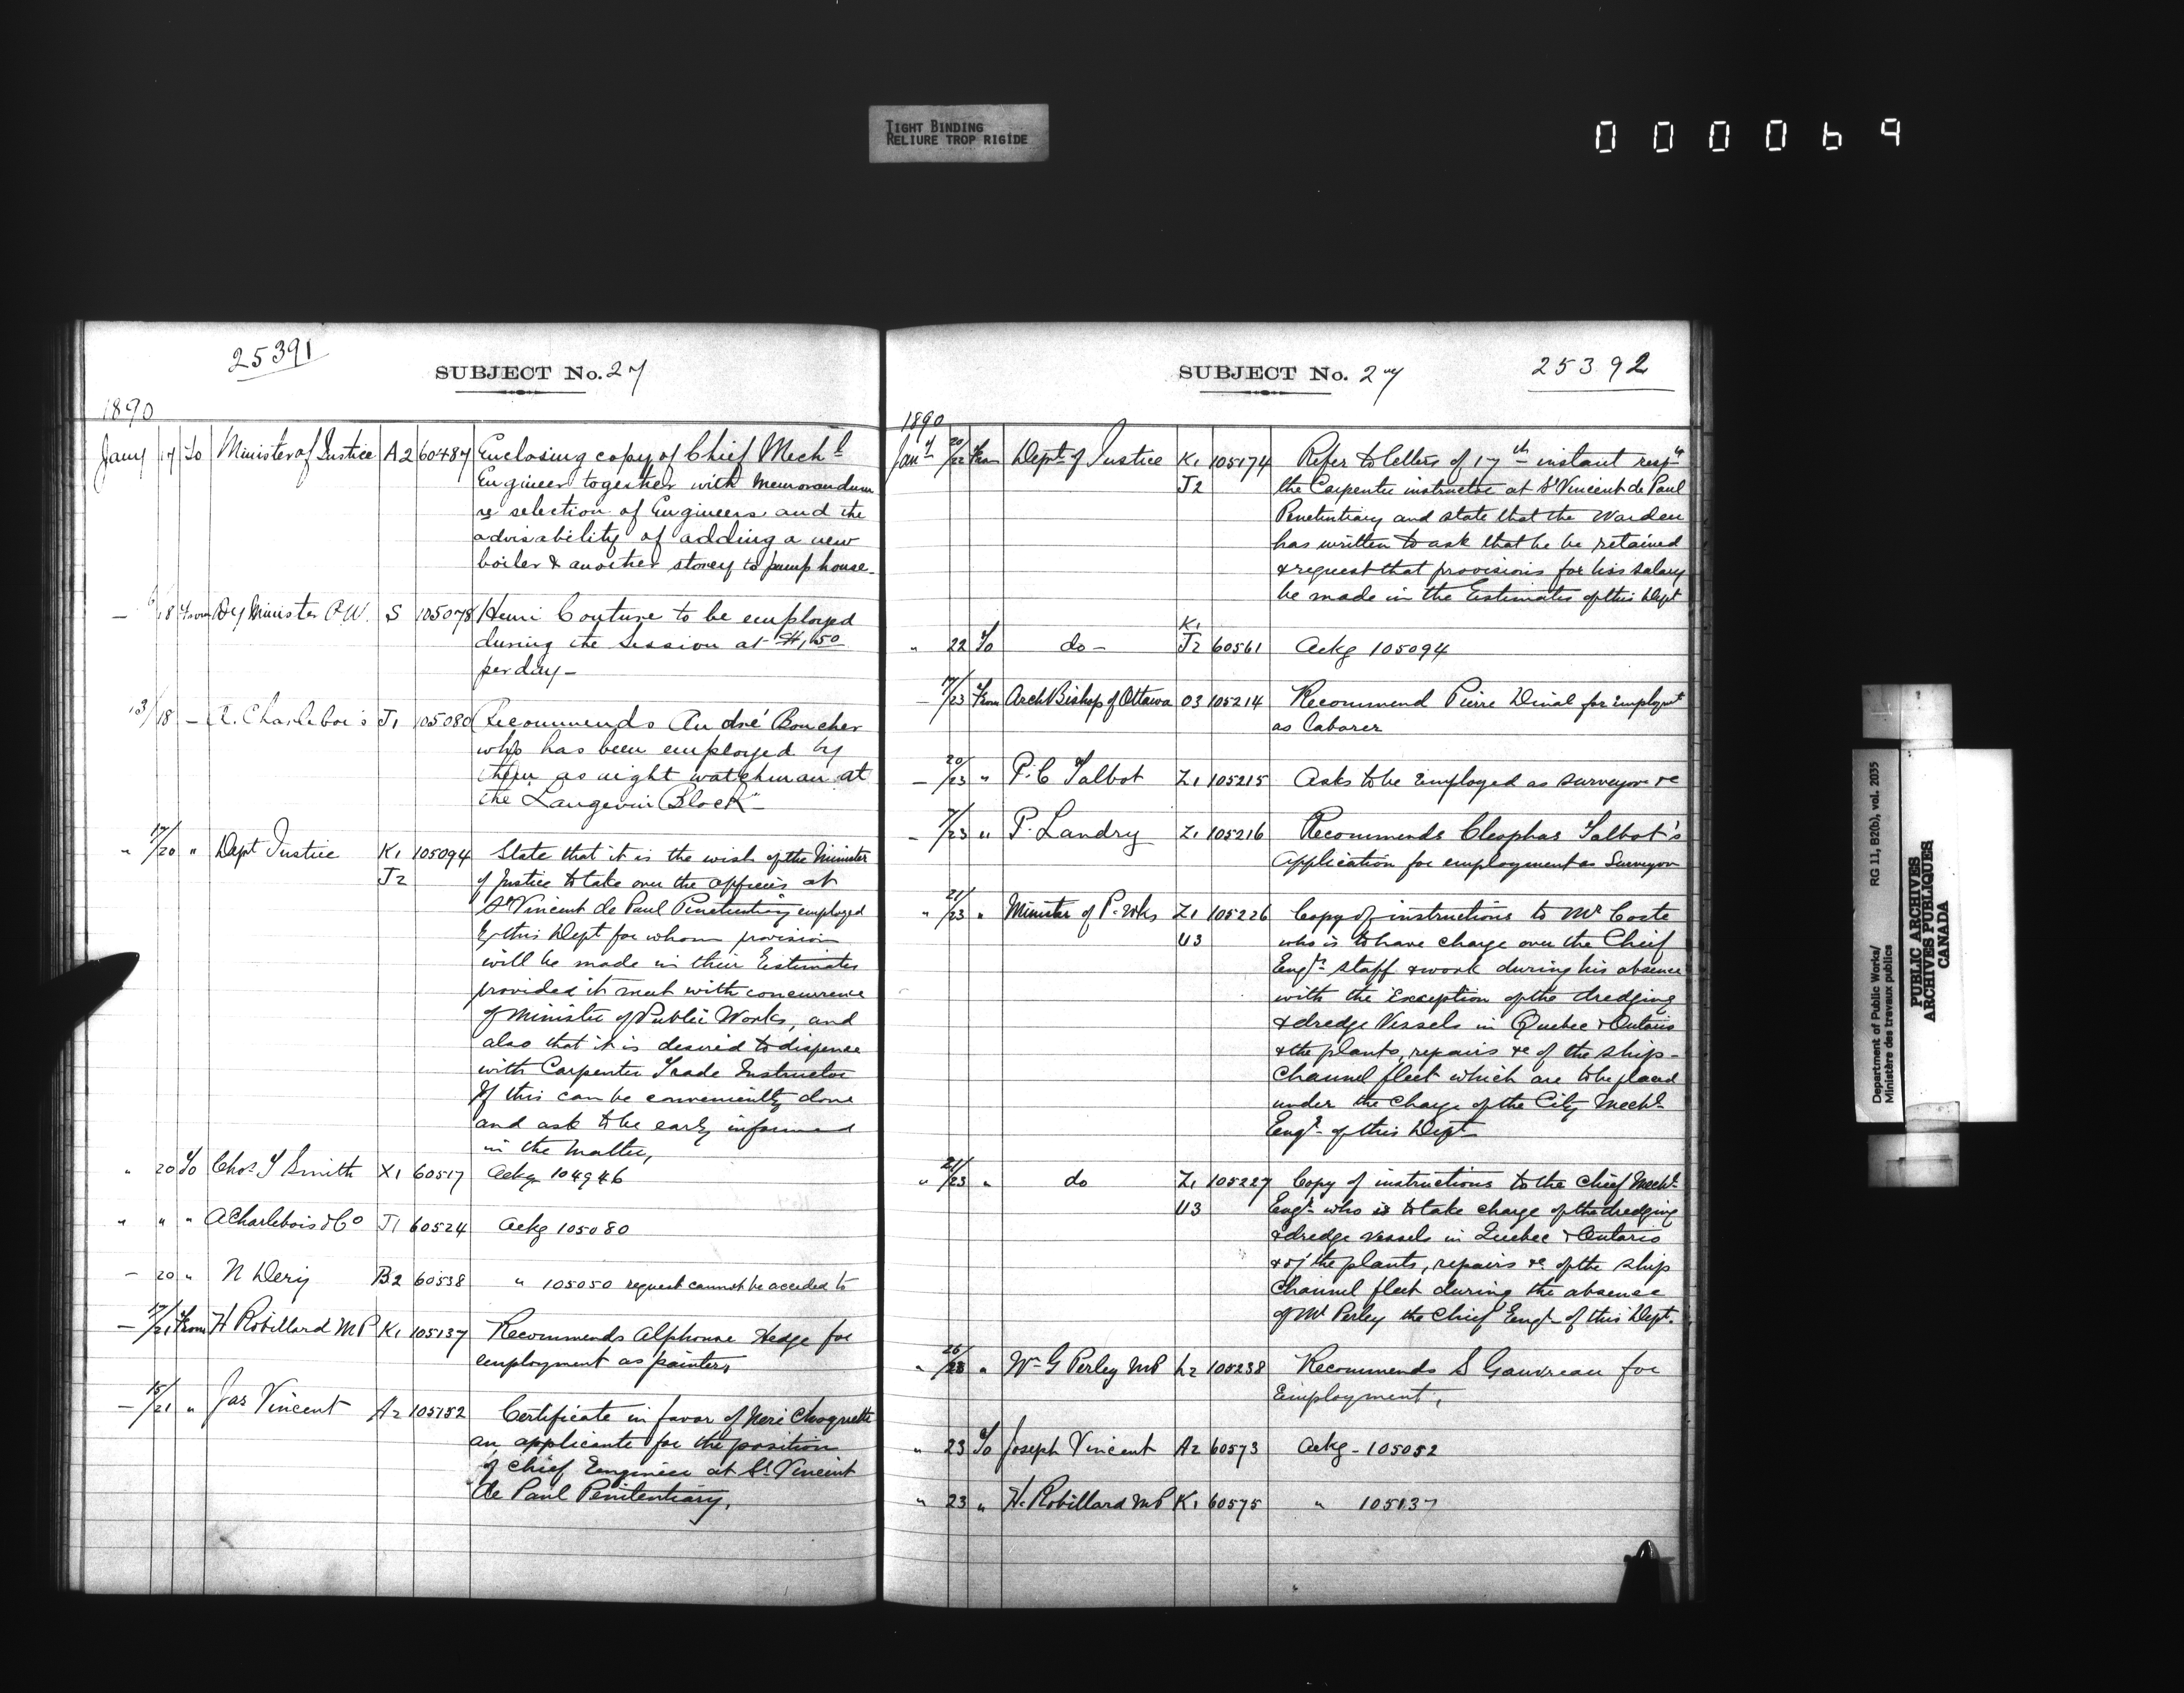 TIGHT BINDING
RELIURE TROP RIGIDE
000069
25391
SUBJECT No. 27
1890
Jany 17 To Minister of Justice A2 60487 Enclosing copy of Chief Mechl
Engineer together with Memorandum
re selection of Engineers and the
advisability of adding a new
boiler & another storey to pump house.
— 18 From Dy Minister P.W. S 105078 Henri Couture to be employed
during the Session at $1,50
per day —
13/18 — A. Charlebois J1 105080 Recommends André Boucher
who has been employed by
them as night watchman at
the "Langevin Block" —
" 17/20 " Dept Justice K1 105094 State that it is the wish of the Minister
J2 of Justice to take over the officers at
St Vincent de Paul Penetentiary employed
by this Dept for whom provision
will be made in their Estimates
provided it meet with concurrence
of Minister of Public Works, and
also that it is desired to dispense
with Carpenter Trade Instructor
If this can be conveniently done
and ask to be early informed
in the matter,
" 20 To Chas T Smith X1 60517 Ackg 104946
" " " A Charlebois & Co J1 60524 Ackg 105080
— 20 " N Dery B2 60538 " 105050 request cannot be acceded to
— 17/21 From H Robillard MP K1 105137 Recommends Alphonse Hedge for
employment as painter,
— 15/21 " Jas Vincent A2 105152 Certificate in favor of Neri Choquette
an applicante for the position
of Chief Engineer at St Vincent
de Paul Penitentiary,
SUBJECT No. 27
25392
1890
Jany 20/22 From Dept of Justice K1 105174 Refer to letters of 17th instant respg
J2 the Carpenter instructor at St Vincent de Paul
Penetentiary and state that the Warden
has written to ask that he be retained
& request that provisions for his salary
be made in the Estimates of this Dept
K1
" 22 To do — J2 60561 Ackg 105094
— 17/23 From Arch Bishop of Ottawa O3 105214 Recommend Pierre Dinal for employmt
as Laborer
— 20/23 " P. C Talbot Z1 105215 Asks to be employed as surveyor &c
— 7/23 " P. Landry Z1 105216 Recommends Cleophas Talbot's
application for employment as Surveyor
" 21/23 " Minister of P. Wks Z1 105226 Copy of instructions to Mr Coste
U3 who is to have charge over the Chief
Engrs staff & work during his absence
with the exception of the dredging
& dredge Vessels in Quebec & Ontario
& the plants, repairs &c of the ship-
Channel fleet which are to be placed
under the Charge of the City Mechl
Engr of this Dept
" 21/23 " do Z1 105227 Copy of instructions to the Chief Mechl
U3 Engr who is to take charge of the dredging
& dredge vessels in Quebec & Ontario
& of the plants, repairs &c of the ship
Channel fleet during the absence
of Mr Perley the Chief Engr of this Dept.
" /23 " Wm G Perley MP L2 105238 Recommends S Gauvreau for
Employment,
" 23 To Joseph Vincent A2 60573 Ackg - 105052
" 23 " H. Robillard MP K1 60575 " 105137
Department of Public Works/
Ministère des travaux publics
RG 11, B2(b), vol. 2035
PUBLIC ARCHIVES
ARCHIVES PUBLIQUES
CANADA